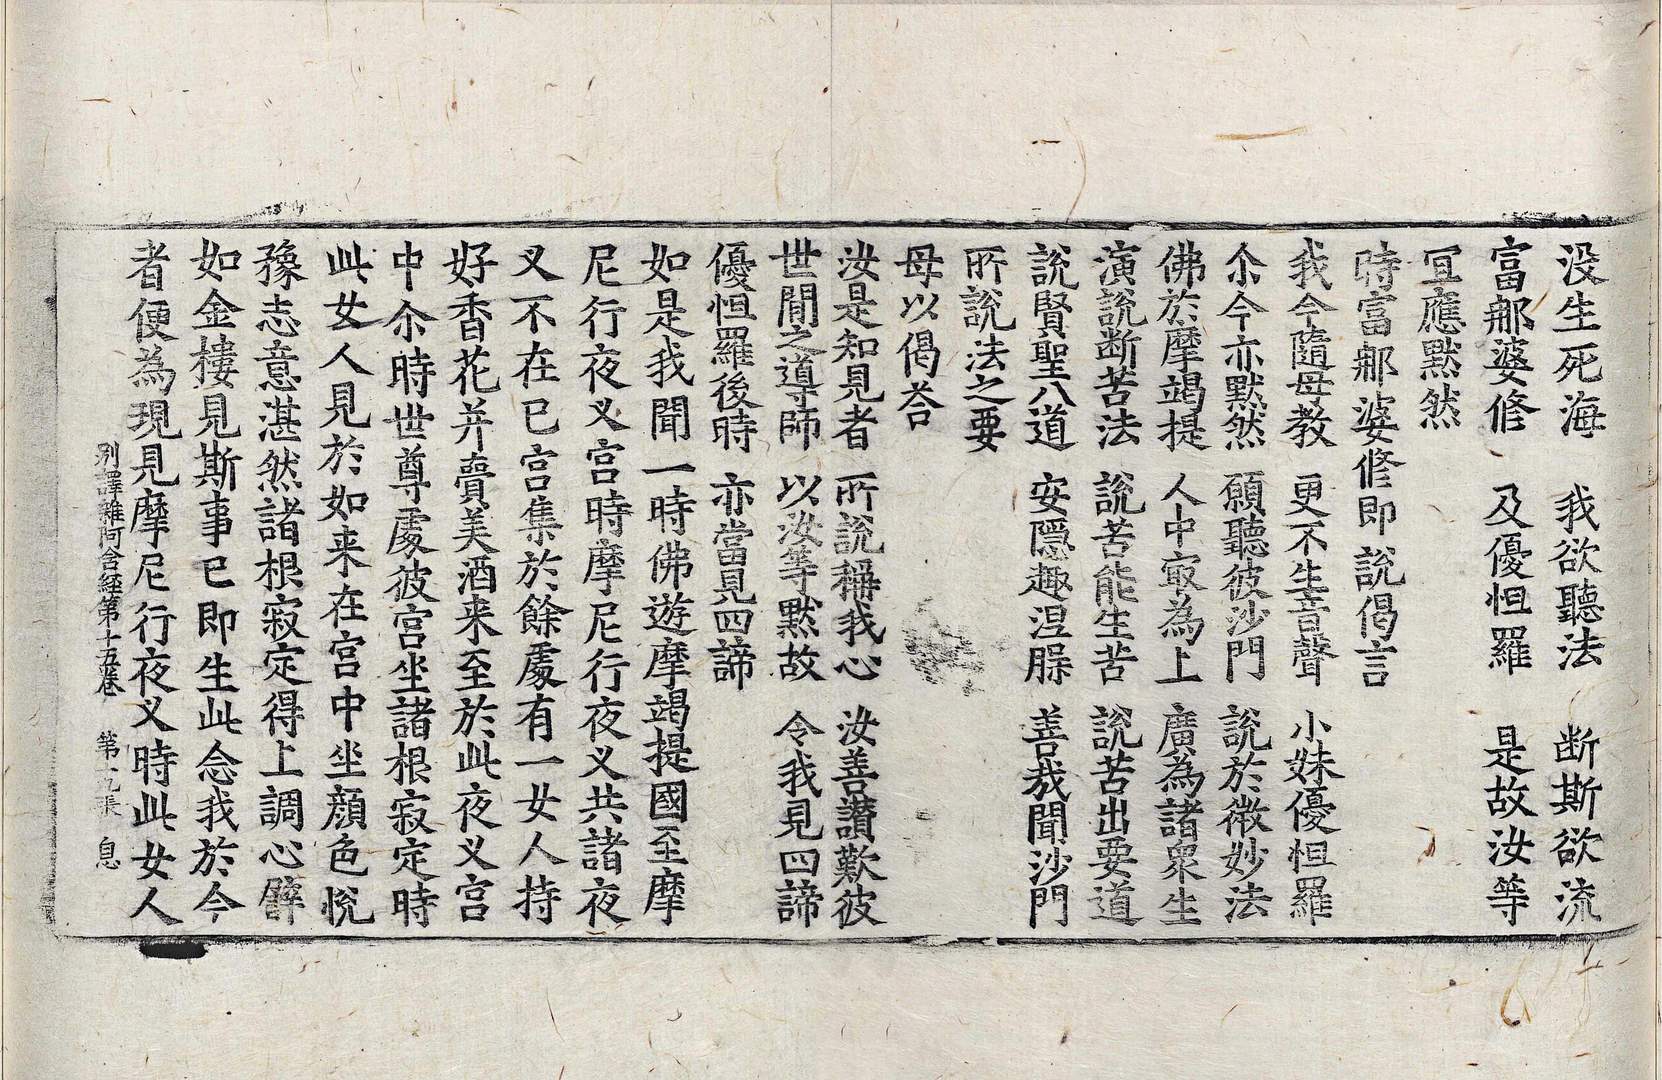 没生死海　我欲聽法　断斯欲流
富郍婆修　及優怛羅　是故汝等
冝應黙然
時富郍婆修即說偈言
我今隨母教　更不生音聲　小妹優怛羅
尒今亦黙然　願聽彼沙門　說於微妙法
佛於摩竭提　人中㝡為上　廣為諸衆生
演說断苦法　說苦能生苦　說苦出要道
說賢聖八道　安隠趣涅膟　善㦲聞沙門
所說法之要
母以偈荅
汝是知見者　所說稱我心　汝善讃歎彼
世間之導師　以汝等黙故　令我見四諦
優怛羅後時　亦當見四諦
如是我聞一時佛遊摩竭提國至摩
尼行夜叉宫時摩尼行夜叉共諸夜
叉不在已宫集於餘䖏有一女人持
好香花并賣美酒来至於此夜叉宫
中尒時世尊䖏彼宫坐諸根寂定時
此女人見於如来在宫中坐顔色恱
豫志意湛然諸根寂定得上調心譬
如金樓見斯事已即生此念我於今
者便為現見摩尼行夜叉時此女人
别譯雜阿含經第十五卷　第一九張　息